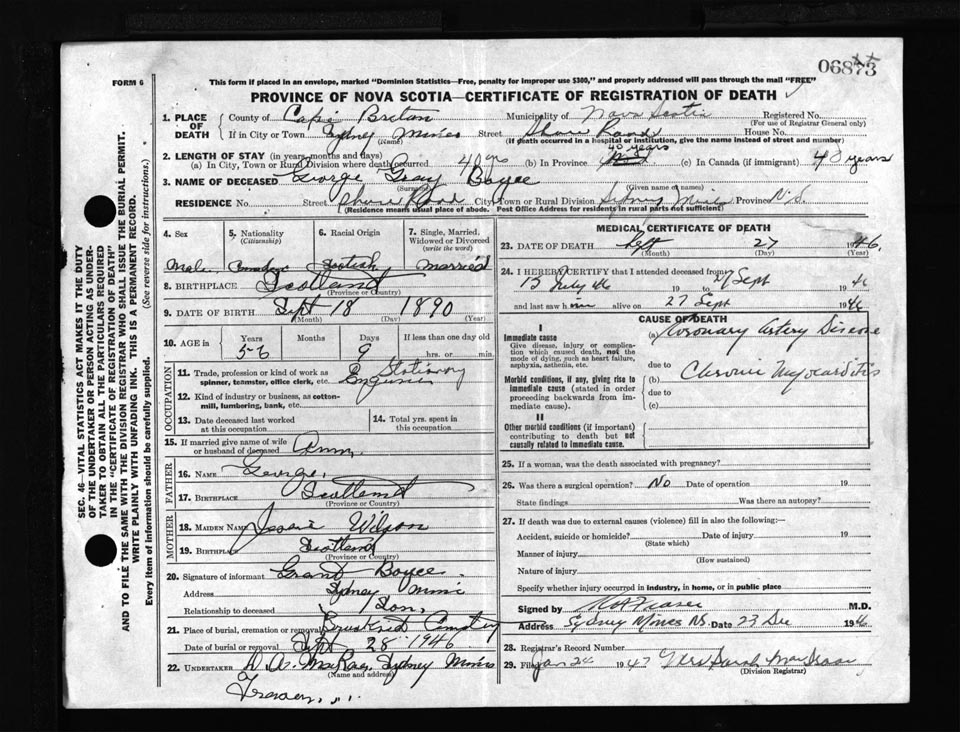 06873
FORM 6
This form if placed in an envelope, marked "Dominion Statistics—Free, penalty for improper use $300," and properly addressed will pass through the mail "FREE"
PROVINCE OF NOVA SCOTIA—CERTIFICATE OF REGISTRATION OF DEATH
1. PLACE OF DEATH County of Cape Breton Municipality of Nova Scotia Registered No.
(For use of Registrar General only)
If in City or Town Sydney Mines Street Shore Road House No.
(Name) (If death occurred in a hospital or institution, give the name instead of street and number)
2. LENGTH OF STAY (in years, months and days)
(a) In City, Town or Rural Division where death occurred 40 yrs (b) In Province 40 years (c) In Canada (if immigrant) 40 years
3. NAME OF DECEASED George Gray Boyce
(Surname) (Given name or names)
RESIDENCE No. Street Shore Road City Town or Rural Division Sydney Mines Province N.S.
(Residence means usual place of abode. Post Office Address for residents in rural parts not sufficient)
4. Sex 5. Nationality (Citizenship) 6. Racial Origin 7. Single, Married, Widowed or Divorced (write the word)
Male Canadian Scotish Married
8. BIRTHPLACE Scotland
(Province or Country)
9. DATE OF BIRTH Sept 18 1890
(Month) (Day) (Year)
10. AGE in Years Months Days If less than one day old
56 9 hrs. or min.
OCCUPATION
11. Trade, profession or kind of work as spinner, teamster, office clerk, etc. Stationary Engineer
12. Kind of industry or business, as cotton-mill, lumbering, bank, etc.
13. Date deceased last worked at this occupation 14. Total yrs. spent in this occupation
15. If married give name of wife or husband of deceased Ann
FATHER
16. NAME George
17. BIRTHPLACE Scotland
(Province or Country)
MOTHER
18. MAIDEN NAME Jessie Wilson
19. BIRTHPLACE Scotland
(Province or Country)
20. Signature of informant Grant Boyce
Address Sydney Mines
Relationship to deceased Son
21. Place of burial, cremation or removal Cemetery
Date of burial or removal Sept 28 1946
22. UNDERTAKER D. A. MacRae, Sydney Mines
(Name and address)
MEDICAL CERTIFICATE OF DEATH
23. DATE OF DEATH Sept 27 1946
(Month) (Day) (Year)
24. I HEREBY CERTIFY that I attended deceased from
15 July 46 19 to 27 Sept 19 46
and last saw him alive on 27 Sept 1946
CAUSE OF DEATH
I
Immediate cause (a) Coronary Artery Disease
Give disease, injury or complication which caused death, not the mode of dying, such as heart failure, asphyxia, asthenia, etc.
due to
Morbid conditions, if any, giving rise to immediate cause (stated in order proceeding backwards from immediate cause). (b) Chronic Myocarditis
due to
(c)
II
Other morbid conditions (if important) contributing to death but not causally related to immediate cause.
25. If a woman, was the death associated with pregnancy?
26. Was there a surgical operation? No Date of operation 19
State findings Was there an autopsy?
27. If death was due to external causes (violence) fill in also the following:—
Accident, suicide or homicide? Date of injury 19
(State which)
Manner of injury
(How sustained)
Nature of injury
Specify whether injury occurred in industry, in home, or in public place
Signed by M.D.
Address Sydney Mines NS. Date 23 Dec 1946
28. Registrar's Record Number
29. Filed Jan 24 1947 Mrs Sarah
(Division Registrar)
SEC. 46—VITAL STATISTICS ACT MAKES IT THE DUTY
OF THE UNDERTAKER OR PERSON ACTING AS UNDERTAKER TO OBTAIN ALL THE PARTICULARS REQUIRED
IN THE "CERTIFICATE OF REGISTRATION OF DEATH"
AND TO FILE THE SAME WITH THE DIVISION REGISTRAR WHO SHALL ISSUE THE BURIAL PERMIT.
WRITE PLAINLY WITH UNFADING INK. THIS IS A PERMANENT RECORD.
Every item of information should be carefully supplied. (See reverse side for instructions.)